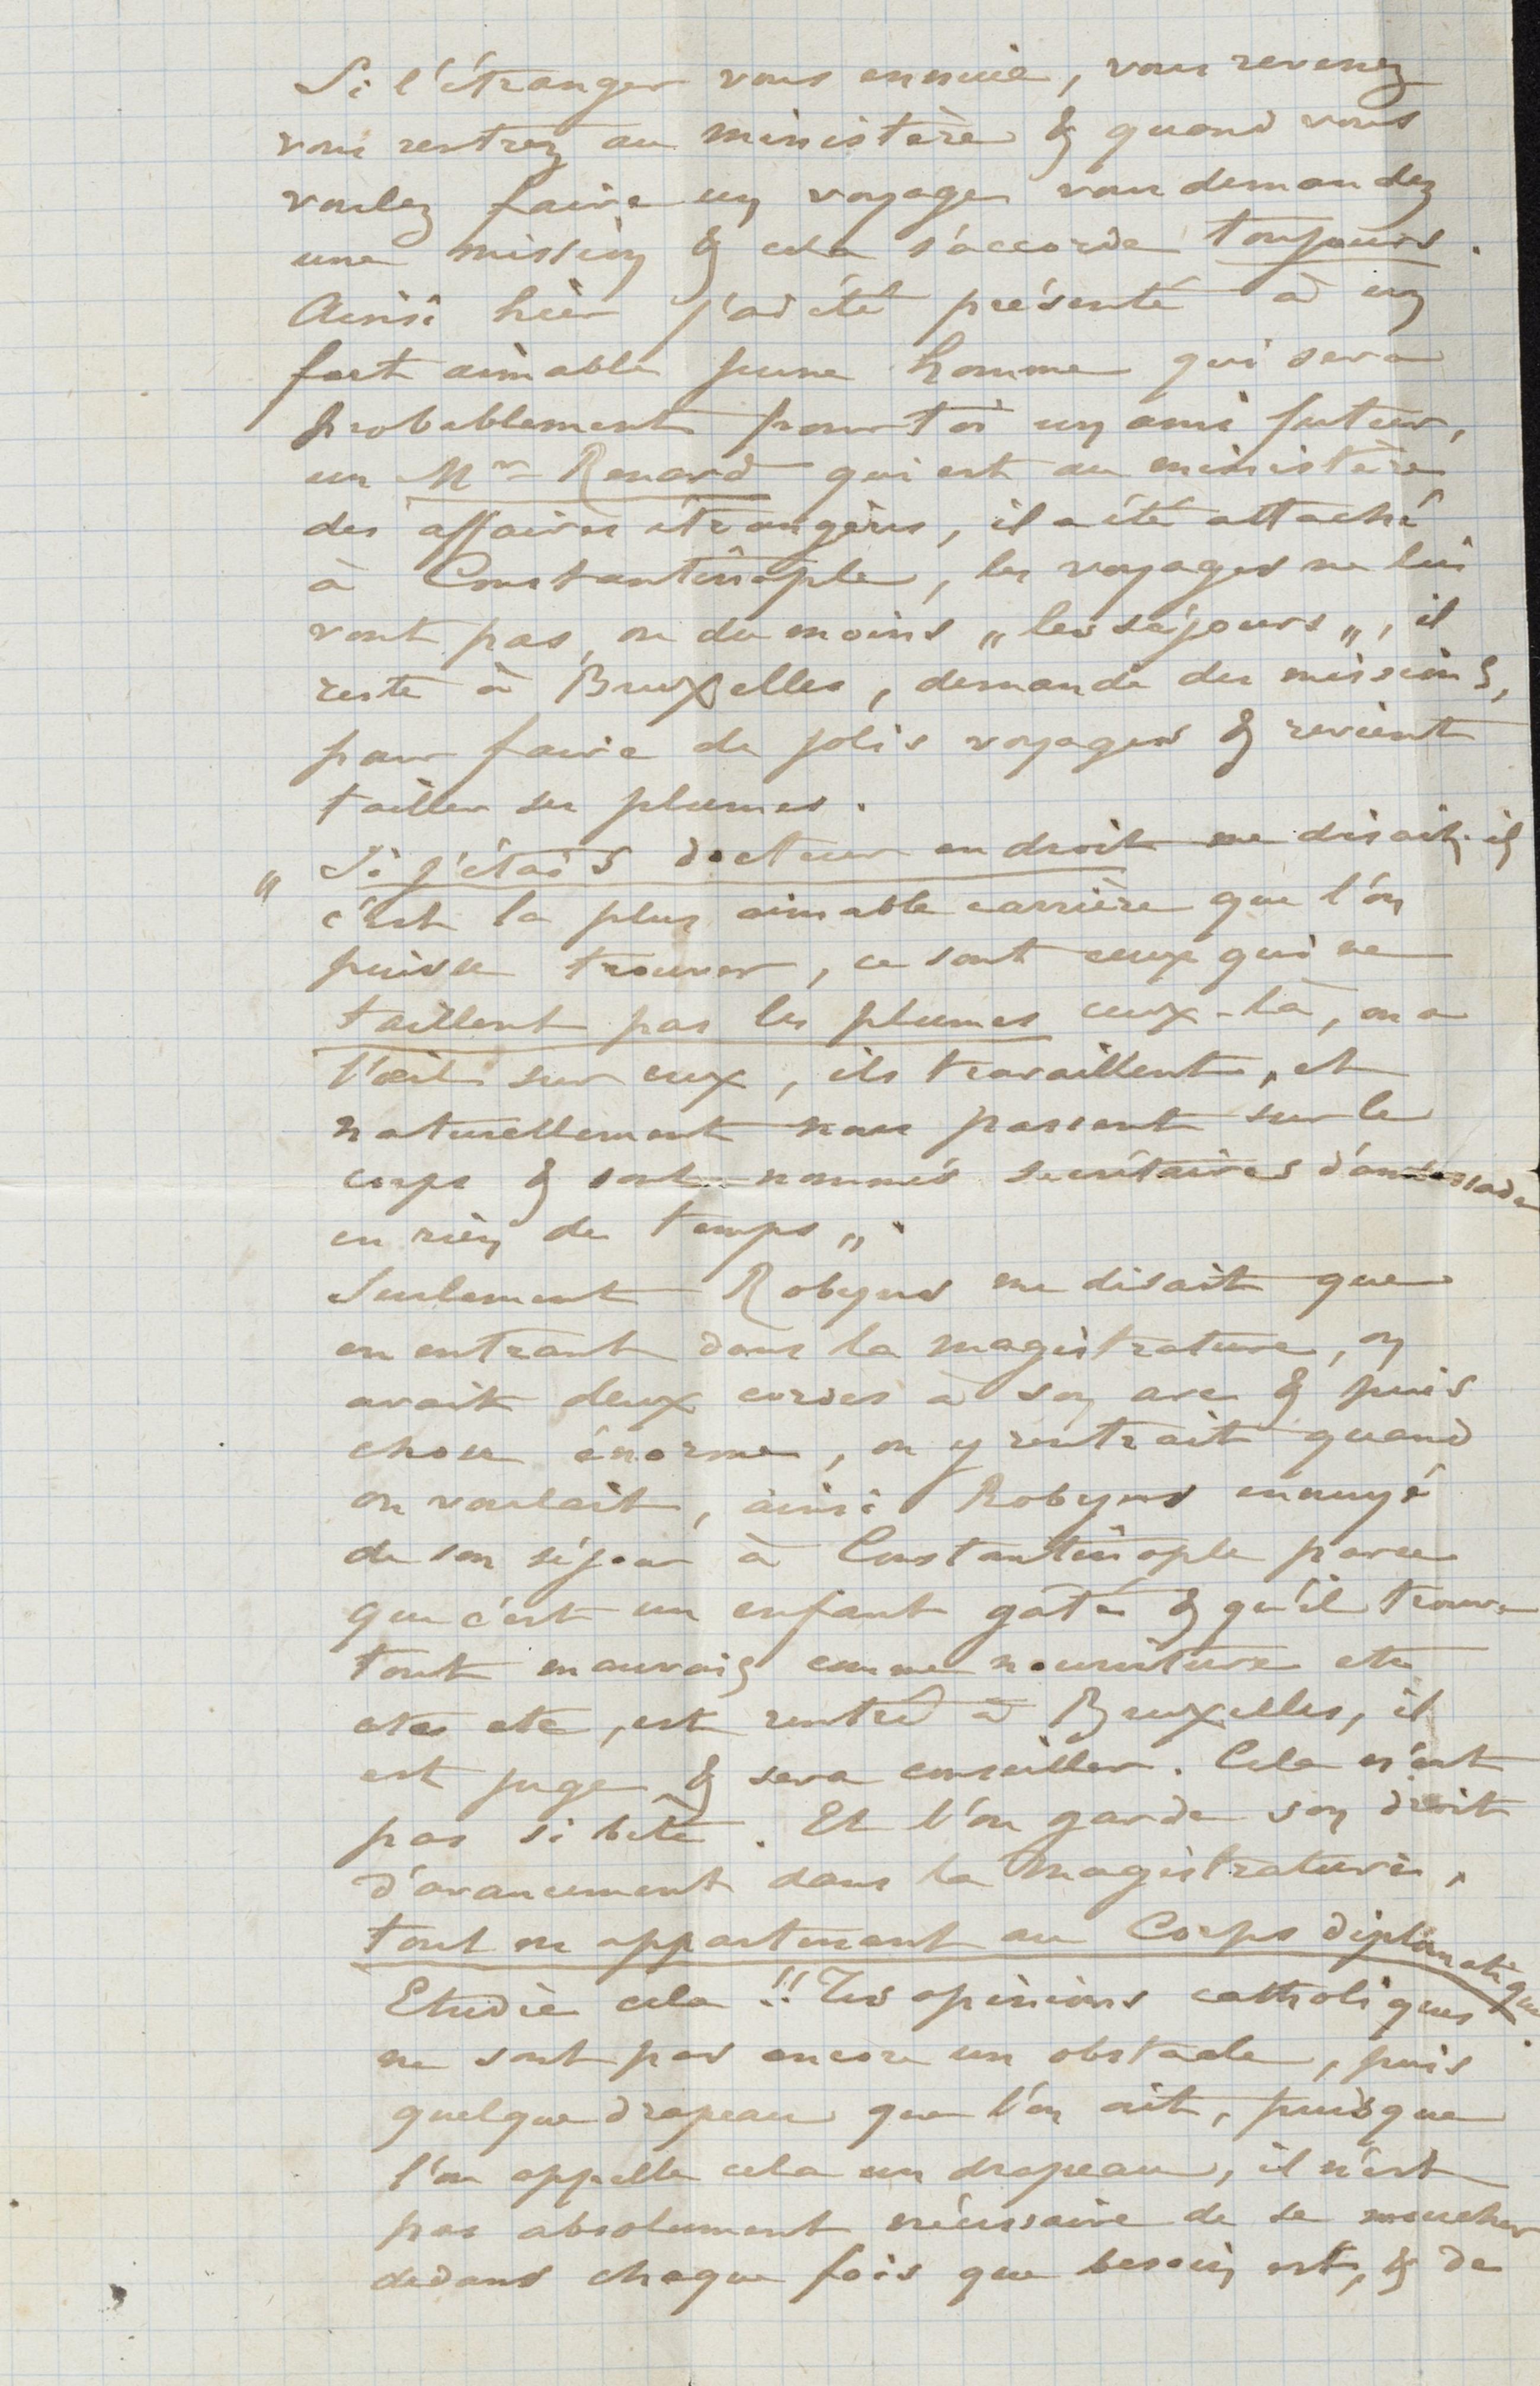 Si l'étranger vous ennuie, vous revenez
vous rentrez au ministère & quand vous
voulez faire un voyage vous demandez
une mission & cela s'accorde toujours.
Ainsi hier j'ai été présenté à un
fort aimable jeune homme qui sera
probablement pour toi un ami futur,
un Mr Renard qui est au ministère
des affaires étrangères, il a été attaché
à Constantinople, les voyages ne lui
vont pas, ou du moins „ les séjours „, il
reste à Bruxelles, demande des missions,
pour faire de jolis voyages & revient
tailler ses plumes.
„ Si j'étais docteur en droit me disait-il
c'est la plus aimable carrière que l'on
puisse trouver, ce sont ceux qui ne
taillent pas les plumes ceux-là, on a
l'œil sur eux, ils travaillent, et
naturellement nous passent sur le
corps & sont nommés secrétaires d'ambassade
en rien de temps „.
Seulement Robyns me disait que
en entrant dans la magistrature, on
avait deux cordes à son arc & puis
chose énorme, on y rentrait quand
on voulait, ainsi Robyns ennuyé
de son séjour à Constantinople parce
que c'est un enfant gâté & qu'il trouve
tout mauvais comme nourriture etc
etc etc, est rentré à Bruxelles, il
est juge & sera conseiller. Cela n'est
pas si bête. Et l'on garde son droit
d'avancement dans la magistrature,
tout en appartenant au Corps diplomatique.
Etudie cela !! Tes opinions catholiques
ne sont pas encore un obstacle, puis
quelque drapeau que l'on ait, puisque
l'on appelle cela un drapeau, il n'est
pas absolument nécessaire de se moucher
dedans chaque fois que besoin est, & de